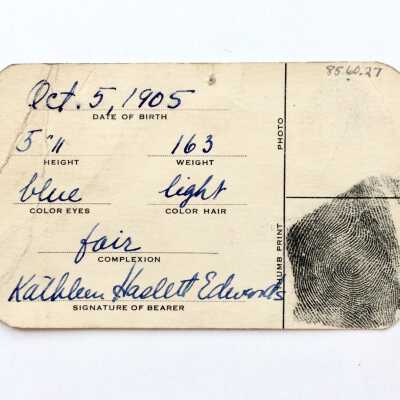 85.60.27
Oct. 5, 1905
DATE OF BIRTH
5'11 163
HEIGHT WEIGHT
blue light
COLOR EYES COLOR HAIR
fair
COMPLEXION
Kathleen Haslett Edwards
SIGNATURE OF BEARER
PHOTO
THUMB PRINT